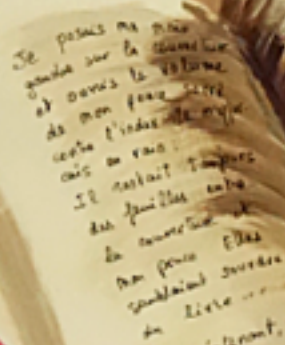 Je posais ma main
gauche sur la couverture
et ouvris le volume
de mon pouce serré
contre l'index
mais en vain :
Il restait toujours
des feuilles entre
la couverture et
mon pouce Elles
semblaient sourdre
du livre ...